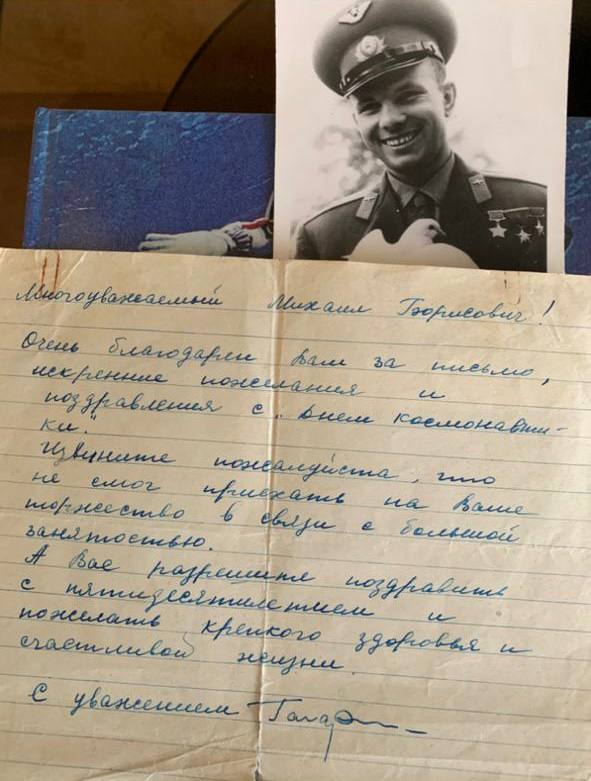 Многоуважаемый Михаил Борисович!
Очень благодарен Вам за письмо,
искренние пожелания и
поздравления с „Днем космонавти-
ки".
Извините пожалуйста, что
не смог приехать на Ваше
торжество в связи с большой
занятостью.
А Вас разрешите поздравить
с пятидесятилетием и
пожелать крепкого здоровья и
счастливой жизни.
С уважением Гагар